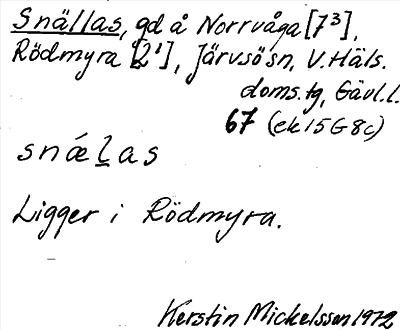 Snällas, gd å Norrvåga [7³],
Rödmyra [2¹], Järvsö sn, V. Häls.
doms. tg, Gävl. l.
67 (ek 15G 8c)
snǽl̲as
Ligger i Rödmyra.
Kerstin Mickelsson 1972